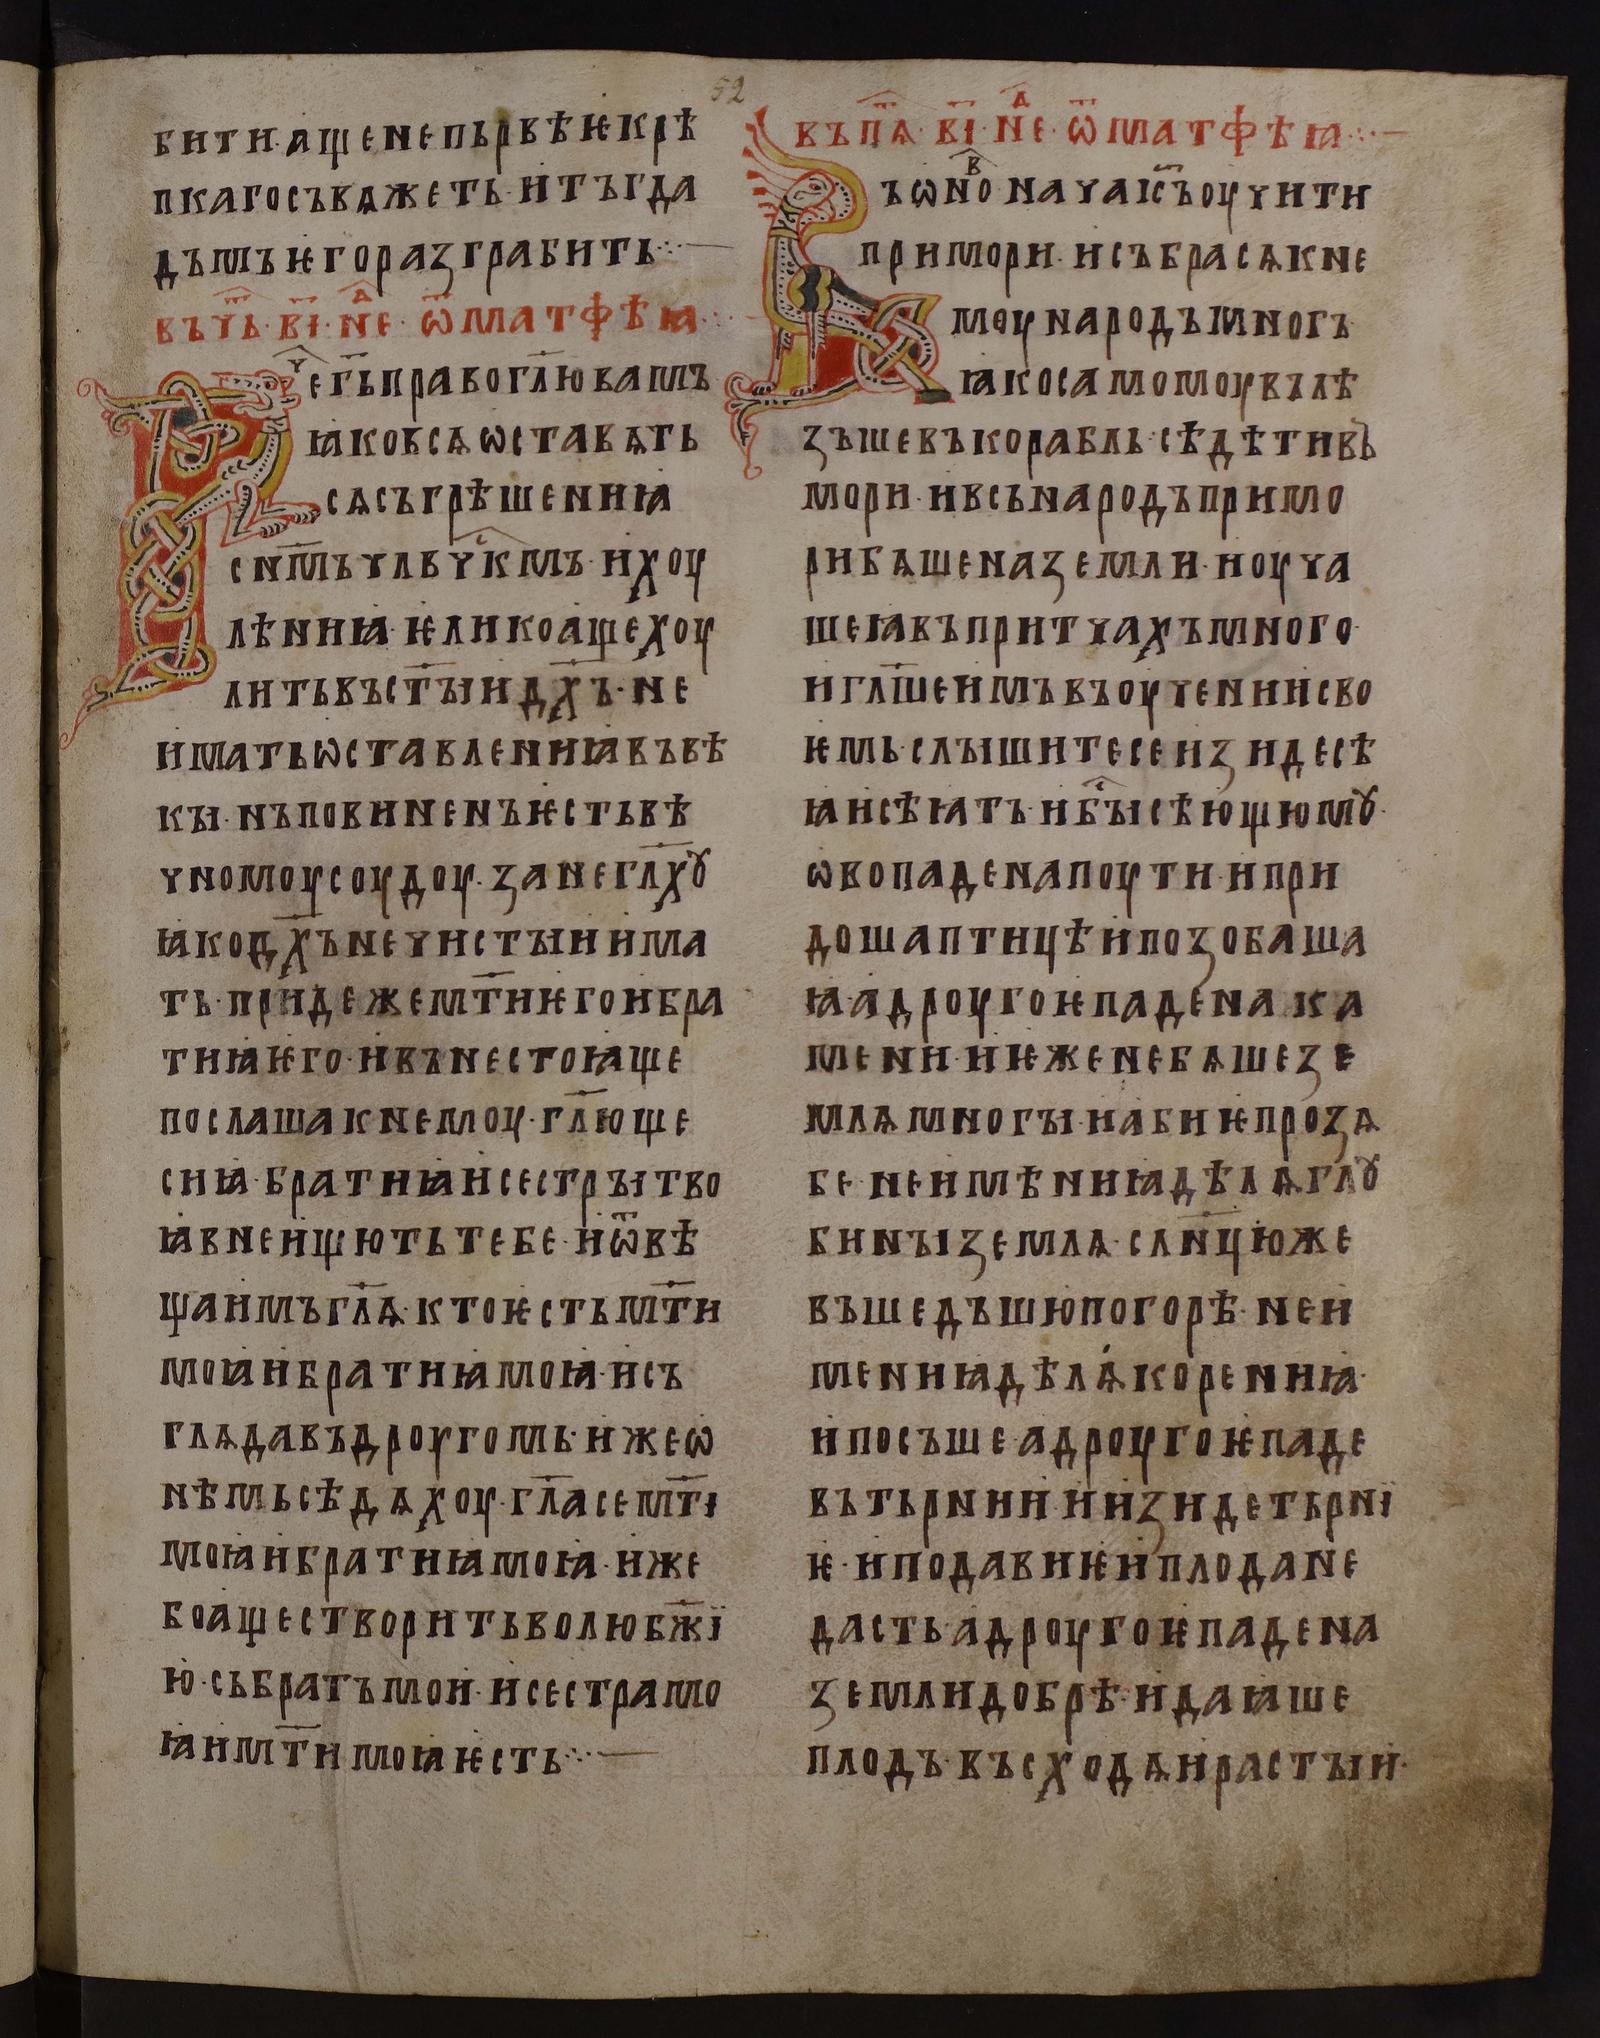 52
бити· аще не пьрвѣѥ крѣ
пкаго съвѧжеть· и тъгда
дъмъ ѥго разграбить⁘—
въ ч҃ь· в҃і· нєⷣ· ѿ матфѣꙗ⁘
Рєⷱ г҃ь право гл҃ю вамъ
ꙗко всѧ ѡставѧть
сѧ съгрѣшениꙗ
сн҃мъ чл҃вчⷭкмъ· и хоу
лѣниꙗ· ѥлико аще хоу
лить въ ст҃ыи дх҃ъ· не
имать ѡставлениꙗ въ вѣ
кы· нъ повиненъ ѥсть вѣ
чномоу соудоу· зане гл҃хꙋ
ꙗко дх҃ъ нечистыи има
ть· приде же мт҃и ѥго и бра
тиꙗ ѥго· и вънѣ стоꙗще
послаша к немоу· гл҃юще
сиꙗ· братиꙗ и сестры тво
ꙗ внѣ ищють тебе· и ѿвѣ
ща имъ гл҃ѧ· кто ѥсть мт҃и
моꙗ и братиꙗ моꙗ· и съ
глѧдавъ дроугомь· иже ѡ
нѣмь сѣдѧхоу· гл҃а се мт҃і
моꙗ и братиꙗ моꙗ· иже
бо аще створить волю бж҃ї
ю· сь братъ мои· и сестра мо
ꙗ и мт҃и моꙗ ѥсть⁘—
въ пѧⷮ· в҃і· нєⷣ· ѿ матфѣꙗ⁘—
Въ ѡноⷡ начаⷮ іс҃ъ оучити
при мори· и събра сѧ к не
моу народъ многъ
ꙗко самомоу вълѣ
зъше въ корабль· сѣдѣти въ
мори· и всь народъ при мо
ри бѧше на земли· и оуча
ше ꙗ въ притчахъ много
и гл҃ше имъ въ оучении сво
ѥмь· слышите се изиде сѣ
ꙗи сѣꙗтъ· и бы́ⷭ сѣющюмꙋ·
ѡво паде на поути· и при
доша птицѣ и позобаша
ꙗ· а дроугоѥ паде на ка
мении· ниѥже не бѧше зе
млѧ многы· и абиѥ прозѧ
бе· не имѣниꙗ дѣлѧ глꙋ
бины землѧ· слн҃цю же
въшедъшю погорѣ· не и
мениꙗ дѣлѧ корениꙗ·
и посъше· а дроугоѥ паде
въ тьрнии· и изиде тьрні
ѥ· и подави ѥ и плода не
дасть· а дроугоѥ паде на
земли добрѣ· и даꙗше
плодъ· въсходѧ и растыи·